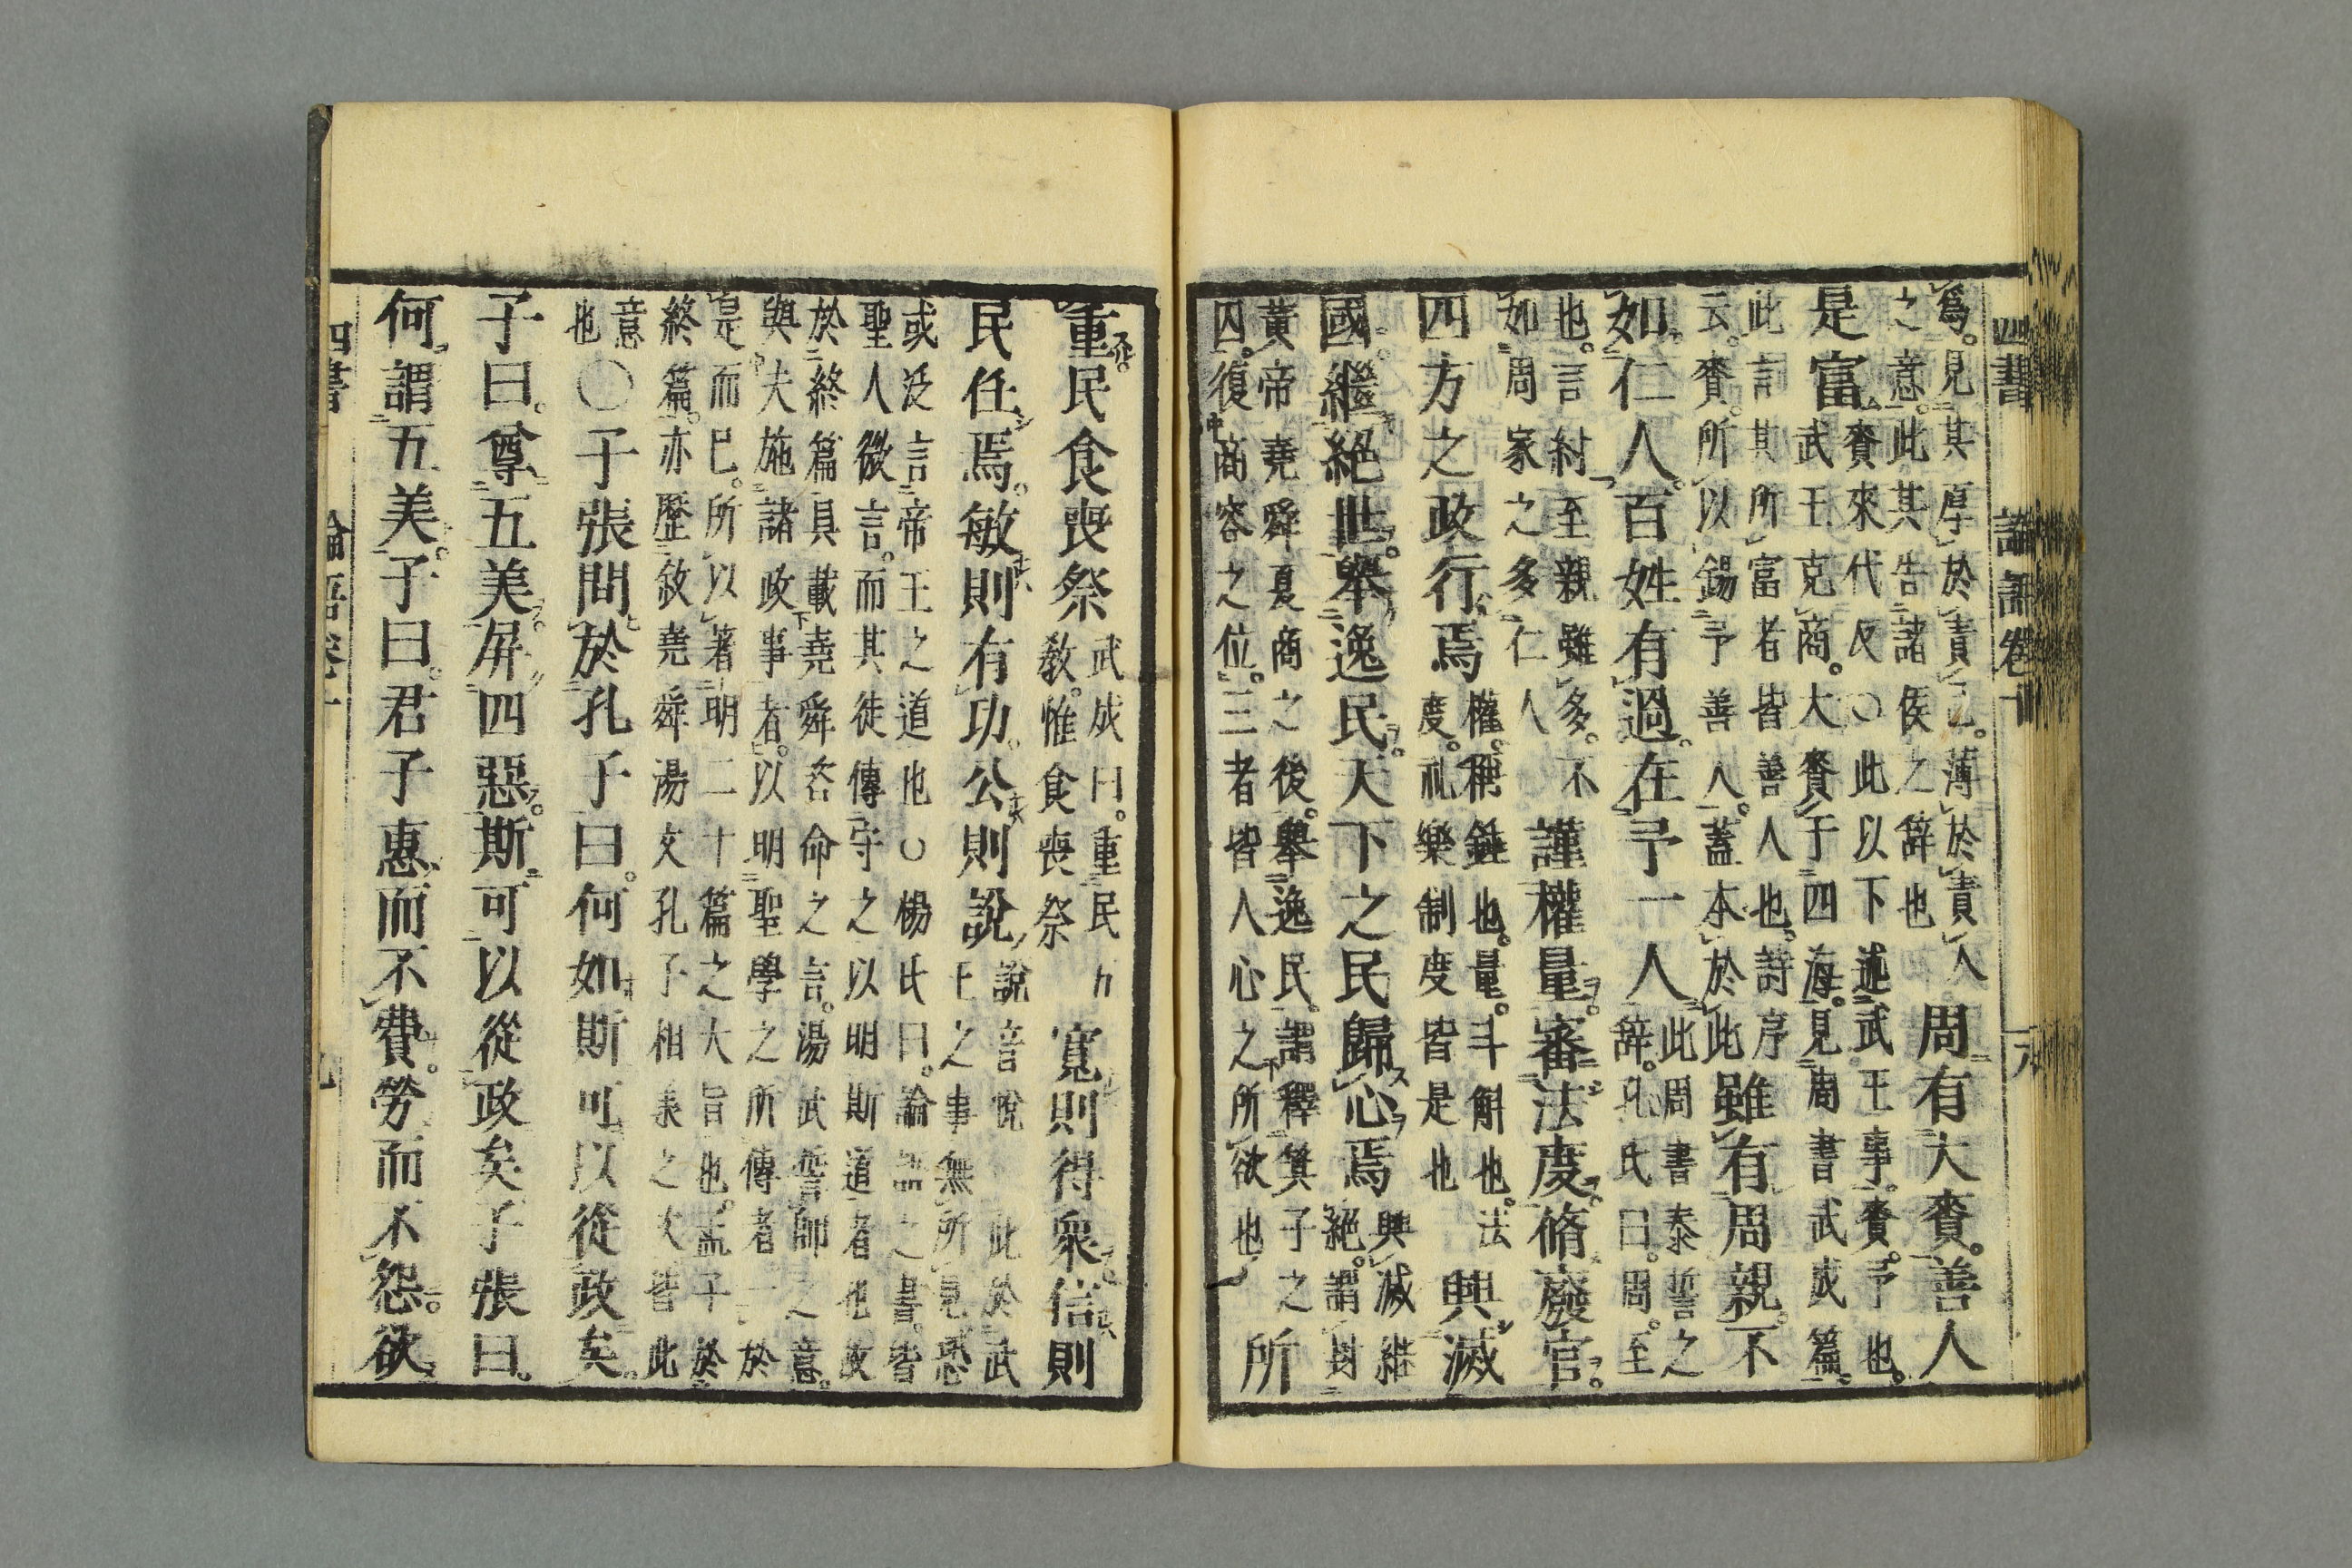 四書 論語卷十 十八
爲見其厚於責己薄於責人
之意此其告諸侯之辭也
周有大賚善人
是富
賚來代反○此以下述武王事賚予也
武王克商大賚于四海見周書武成篇
此言其所富者皆善人也詩序
云賚所以錫予善人蓋本於此
雖有周親不
如仁人百姓有過在予一人
此周書泰誓之
辭孔氏曰周至
也言紂至親雖多不
如周家之多仁人
謹權量審法度脩廢官
四方之政行焉
權稱錘也量斗斛也法
度禮樂制度皆是也
興滅
國繼絕世舉逸民天下之民歸心焉
興滅繼
絕謂封
黃帝堯舜夏商之後舉逸民謂釋箕子之
囚復商容之位三者皆人心之所欲也
所
重民食喪祭
武成曰重民五
敎惟食喪祭
寬則得衆信則
民任焉敏則有功公則說
說音悅 此於武
王之事無所見恐
或泛言帝王之道也○楊氏曰論語之書皆
聖人微言而其徒傳守之以明斯道者也故
於終篇具載堯舜咨命之言湯武誓師之意
與夫施諸政事者以明聖學之所傳者一於
是而已所以著明二十篇之大旨也孟子於
終篇亦歷敘堯舜湯文孔子相承之次皆此
意
也
○子張問於孔子曰何如斯可以從政矣
子曰尊五美屏四惡斯可以從政矣子張曰
何謂五美子曰君子惠而不費勞而不怨欲
四書 論語卷十